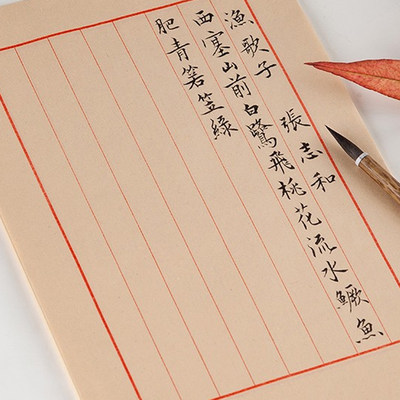 漁歌子
張志和
西塞山前白鷺飛桃花流水鱖魚
肥青箬笠綠